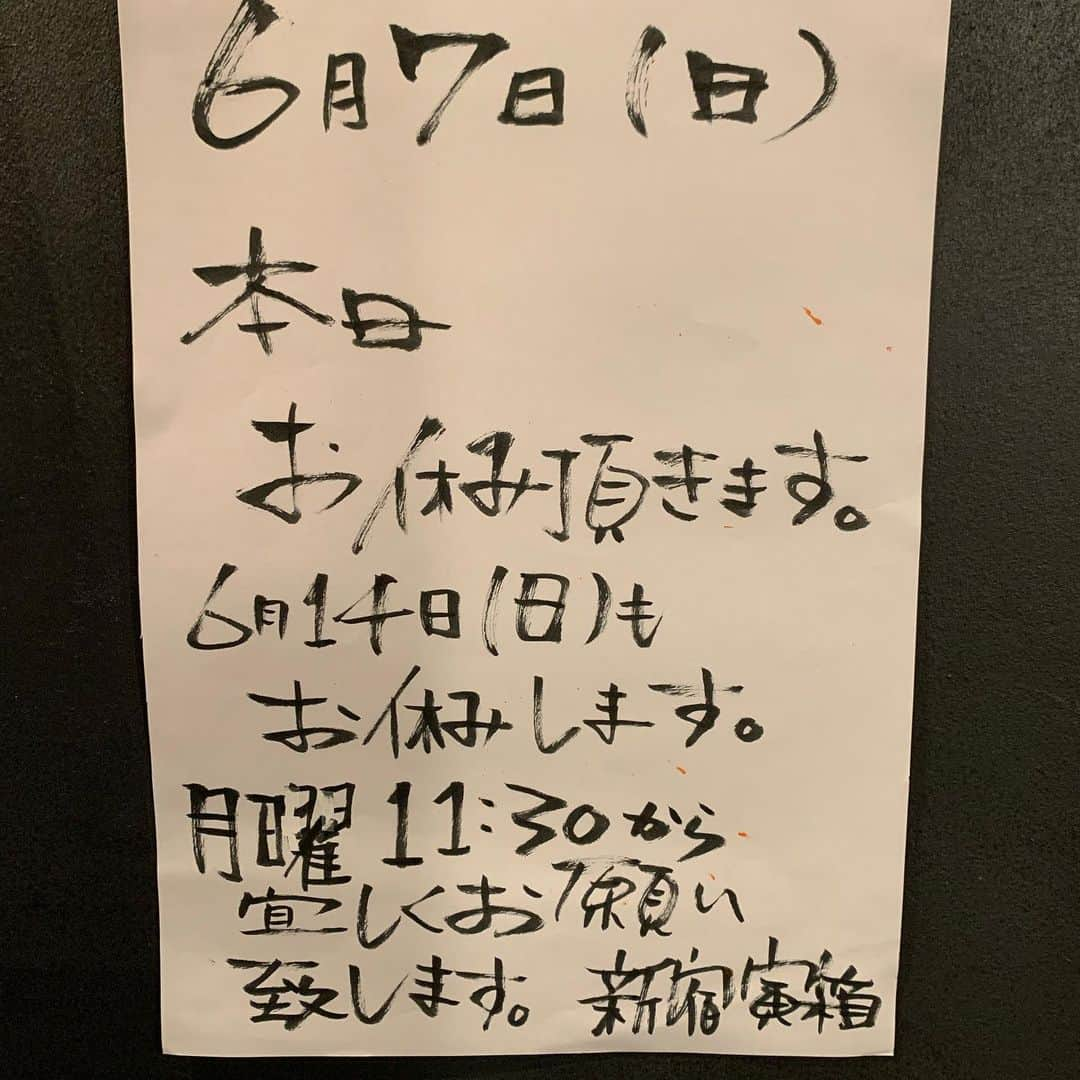 6月7日(日)
本日
お休み頂きます。
6月14日(日)も
お休みします。
月曜 11:30から
宜しくお願い
致します。 新宿寅箱